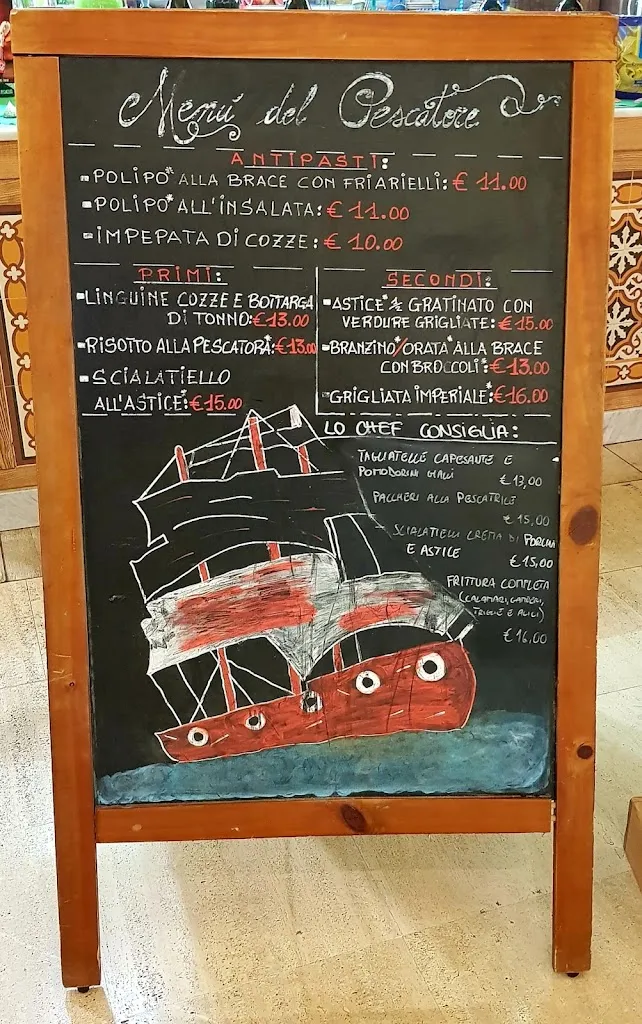 Menú del Pescatore
ANTIPASTI:
-POLIPO* ALLA BRACE CON FRIARIELLI: € 11.00
-POLIPO* ALL'INSALATA: € 11.00
-IMPEPATA DI COZZE: € 10.00
PRIMI:
-LINGUINE COZZE E BOTTARGA
DI TONNO: €13.00
-RISOTTO ALLA PESCATORA*: €13.00
-SCIALATIELLO
ALL'ASTICE*: €15.00
SECONDI:
-ASTICE* ½ GRATINATO CON
VERDURE GRIGLIATE: €15.00
-BRANZINO*/ORATA* ALLA BRACE
CON BROCCOLI*: €13.00
-GRIGLIATA IMPERIALE*: €16.00
LO CHEF CONSIGLIA:
TAGLIATELLE CAPESANTE E
POMODORINI GIALLI
€ 13,00
PACCHERI ALLA PESCATRICE
€ 15,00
SCIALATIELLI CREMA DI
E ASTICE
€ 15,00
FRITTURA COMPLETA
(CALAMARI, GAMBERI,
TRIGLIE E ALICI)
€ 16,00